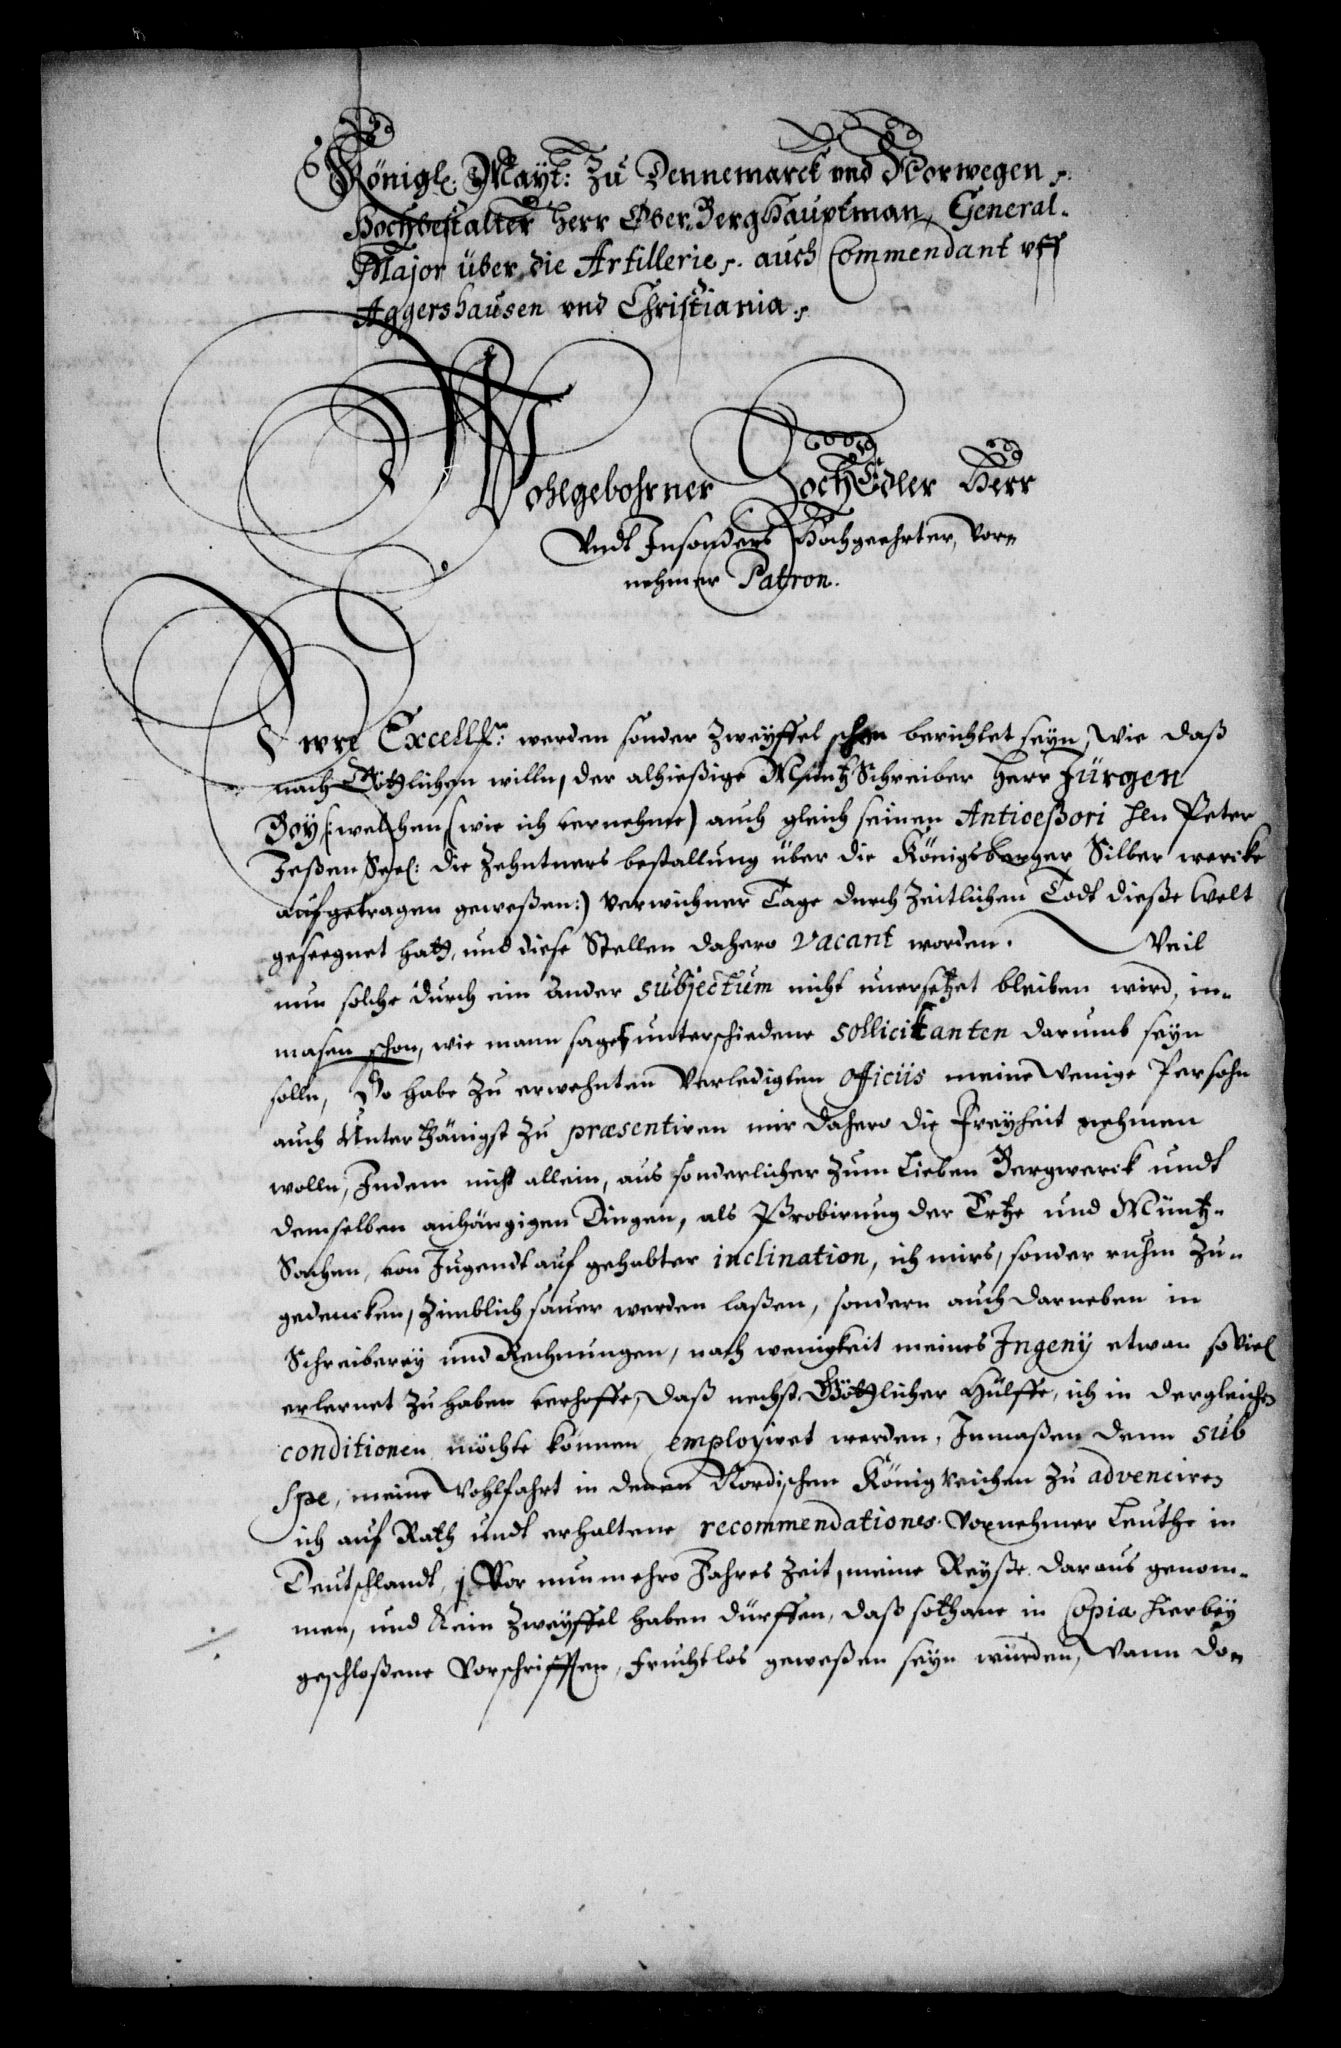 Königl: Mayt: Zu Dennemarck vnd Norwegen p.
Hochbestalter Herr Ober-Berghauptman, General-
Major über die Artillerie p. auch Commendant vff
Aggershausen vnd Christiania p
Wohlgebohrner HochEdler Herr
Vndt Insonders Hochgeehrter, Vor-
nehmer Patron.
Ewre Excell: werden sonder Zweyffel schon berichtet seyn, Wie daß
nach Göttlichen willn, der alhießige MüntzSchreiber Herr Jürgen
Boy (: welchen (wie ich vernehme) auch gleich seinen Anticeßori Hln Peter
Jeßen Seel: die Zehntners bestallung über die Königsberger Silber wercke
aufgetragen geweßen:) verwichner Tage durch Zeitlichen Todt dieße Welt
geseegnet hatt, und diese Stellen dahero vacant worden. Weil
nun solche durch ein ander subjectum nicht unersetzet bleiben wird, in-
masen schon, wie mann saget, unterschiedene sollicitanten darumb seyn
solln, So habe Zu erwehnten Verledigten officiis meine Wenige Persohn
auch Unterthänigst Zu præsentiren mir dahero die Freyheit nehmen
wolln, Indem nicht allein, aus sonderlicher Zum Lieben Bergwerck undt
demselben anhängigen Dingen, als Probirung der Ertze und Müntz-
Sachen, von Jugendt auf gehabter inclination, ich mirs, sonder ruhm Zu-
gedencken, Zimblich sauer werden laßen, sondern auch darneben in
Schreiberey und Rechnungen, nach wenigkeit meines Ingenij etwan so viel
erlernet Zu haben verhoffe, daß nechst Göttlicher Hülffe, ich in dergleichen
conditionen möchte können employret werden, Inmaßen denn sub
spe, meine Wohlfahrt in denen Nordischen Königreichen Zu advenciren
ich auf Rath undt erhaltene recommendationes Vornehmer Leuthe in
Deutschlandt, Vor nunmehro Jahres Zeit, meine Reyße daraus genom-
men, und Kein Zweyffel haben dürffen, daß sothane in Copia hierbey
geschloßene Vorschrifften, fruchtlos geweßen seyn würden, Wann do-